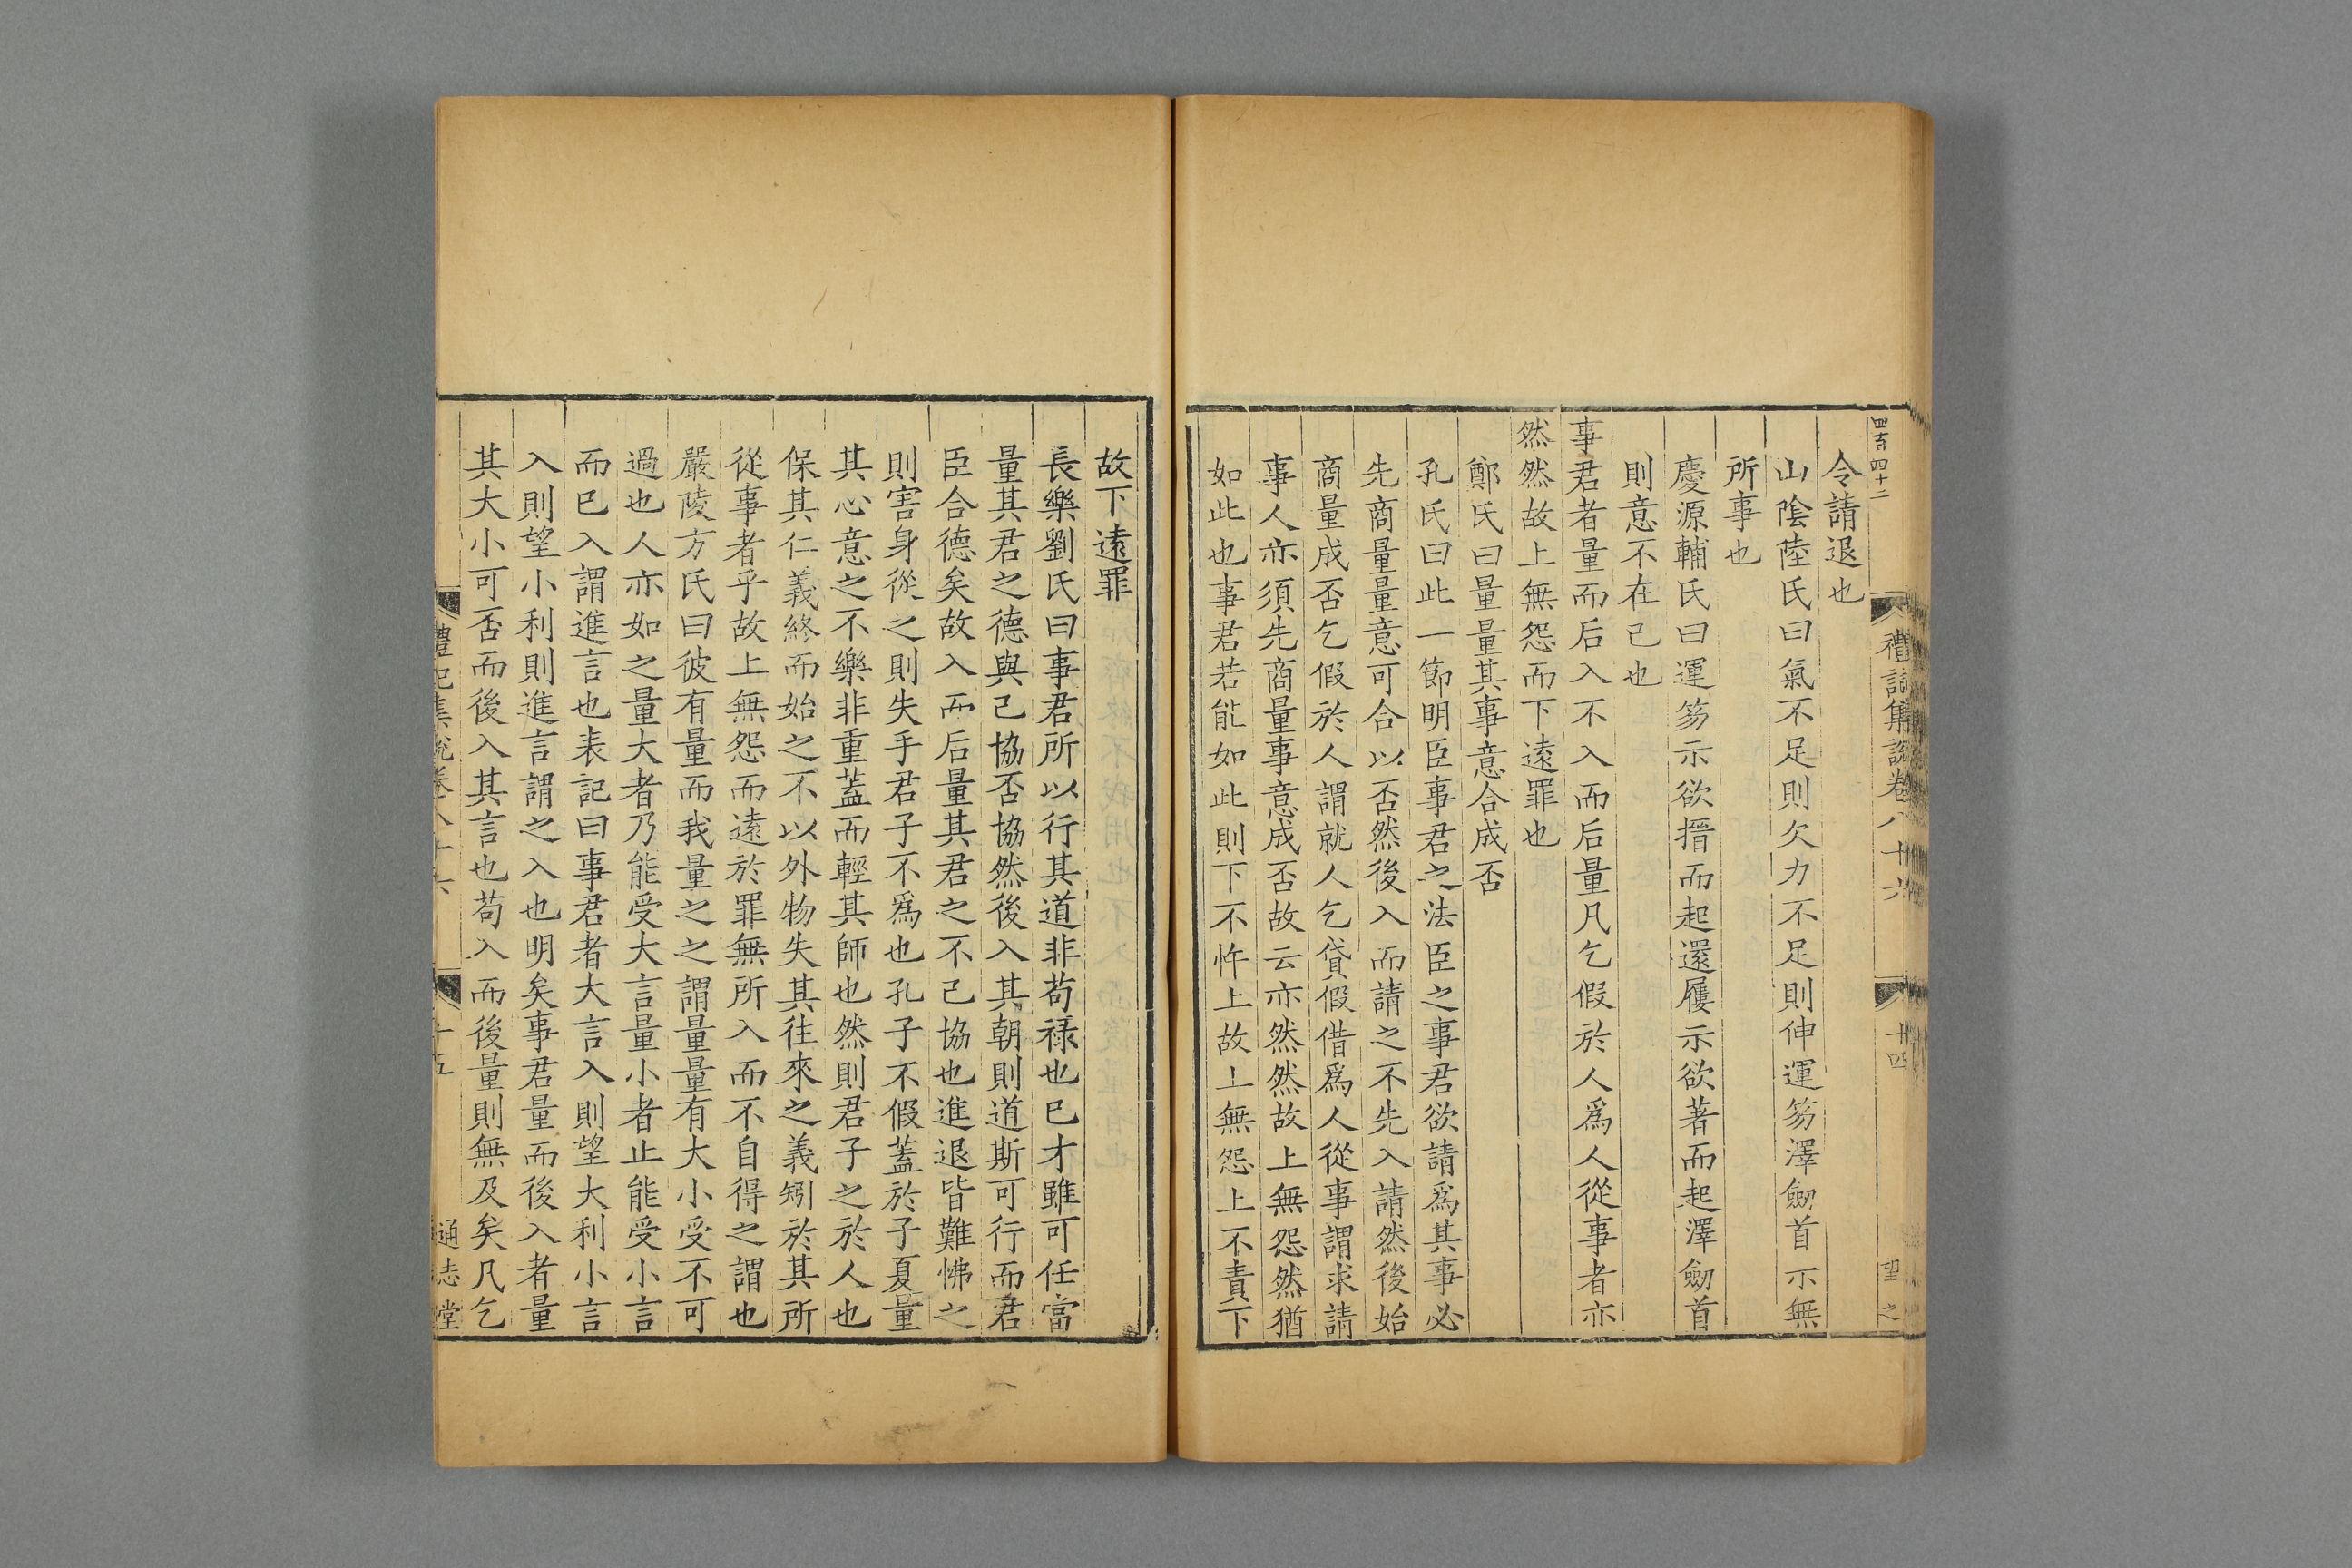 四百四十二
禮記集說卷八十六
十四
望之
令請退也
山陰陸氏曰氣不足則欠力不足則伸運笏澤劒首示無
所事也
慶源輔氏曰運笏示欲搢而起還屨示欲著而起澤劒首
則意不在己也
事君者量而后入不入而后量凡乞假於人爲人從事者亦
然然故上無怨而下遠罪也
鄭氏曰量量其事意合成否
孔氏曰此一節明臣事君之法臣之事君欲請爲其事必
先商量量意可合以否然後入而請之不先入請然後始
商量成否乞假於人謂就人乞貸假借爲人從事謂求請
事人亦須先商量事意成否故云亦然然故上無怨然猶
如此也事君若能如此則下不忤上故上無怨上不責下
故下遠罪
長樂劉氏曰事君所以行其道非苟祿也已才雖可任當
量其君之德與己協否協然後入其朝則道斯可行而君
臣合德矣故入而后量其君之不己協也進退皆難怫之
則害身從之則失手君子不爲也孔子不假蓋於子夏量
其心意之不樂非重蓋而輕其師也然則君子之於人也
保其仁義終而始之不以外物失其往來之義矧於其所
從事者乎故上無怨而遠於罪無所入而不自得之謂也
嚴陵方氏曰彼有量而我量之之謂量量有大小受不可
過也人亦如之量大者乃能受大言量小者止能受小言
而已入謂進言也表記曰事君者大言入則望大利小言
入則望小利則進言謂之入也明矣事君量而後入者量
其大小可否而後入其言也苟入而後量則無及矣凡乞
禮記集說卷八十六
十五
通志堂